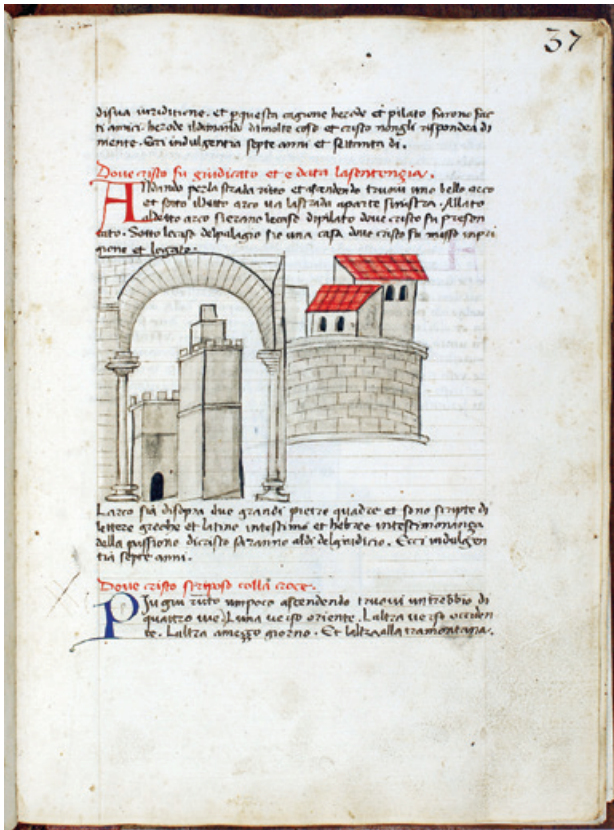 37
disua iuriditione. et p questa cagione herode et pilato furono fac
ti amici. herode il domando di molte cose et cristo nongli rispondea di
mente. Ecci indulgentia septe anni et settanta di.
Doue cristo fu giudicato et e data lasentenzia.
Andando per la strada ritto et ascendendo truoui uno bello arco
et sotto il detto arco ua lastrada aparte sinistra. Allato
aldetto arco sierano lecase dipilato doue cristo fu presen
tato. Sotto lecase delpalagio sie una casa doue cristo fu messo inpri
gione et legato.
Larco sia disopra due grandi pietre quadre et sono scripte di
lettere greche et latine intestimo et hebree intestimonanza
della passione dicristo saranno aldi delgiudicio. Ecci indulgen
tia septe anni.
Doue cristo siriposo colla croce.
Piu giu ritto unpoco ascendendo truoui untrebbio di
quattro uie. Luna uerso oriente. Laltra uerso occiden
te. Laltra amezzo giorno. Et laltra alla tramontana.